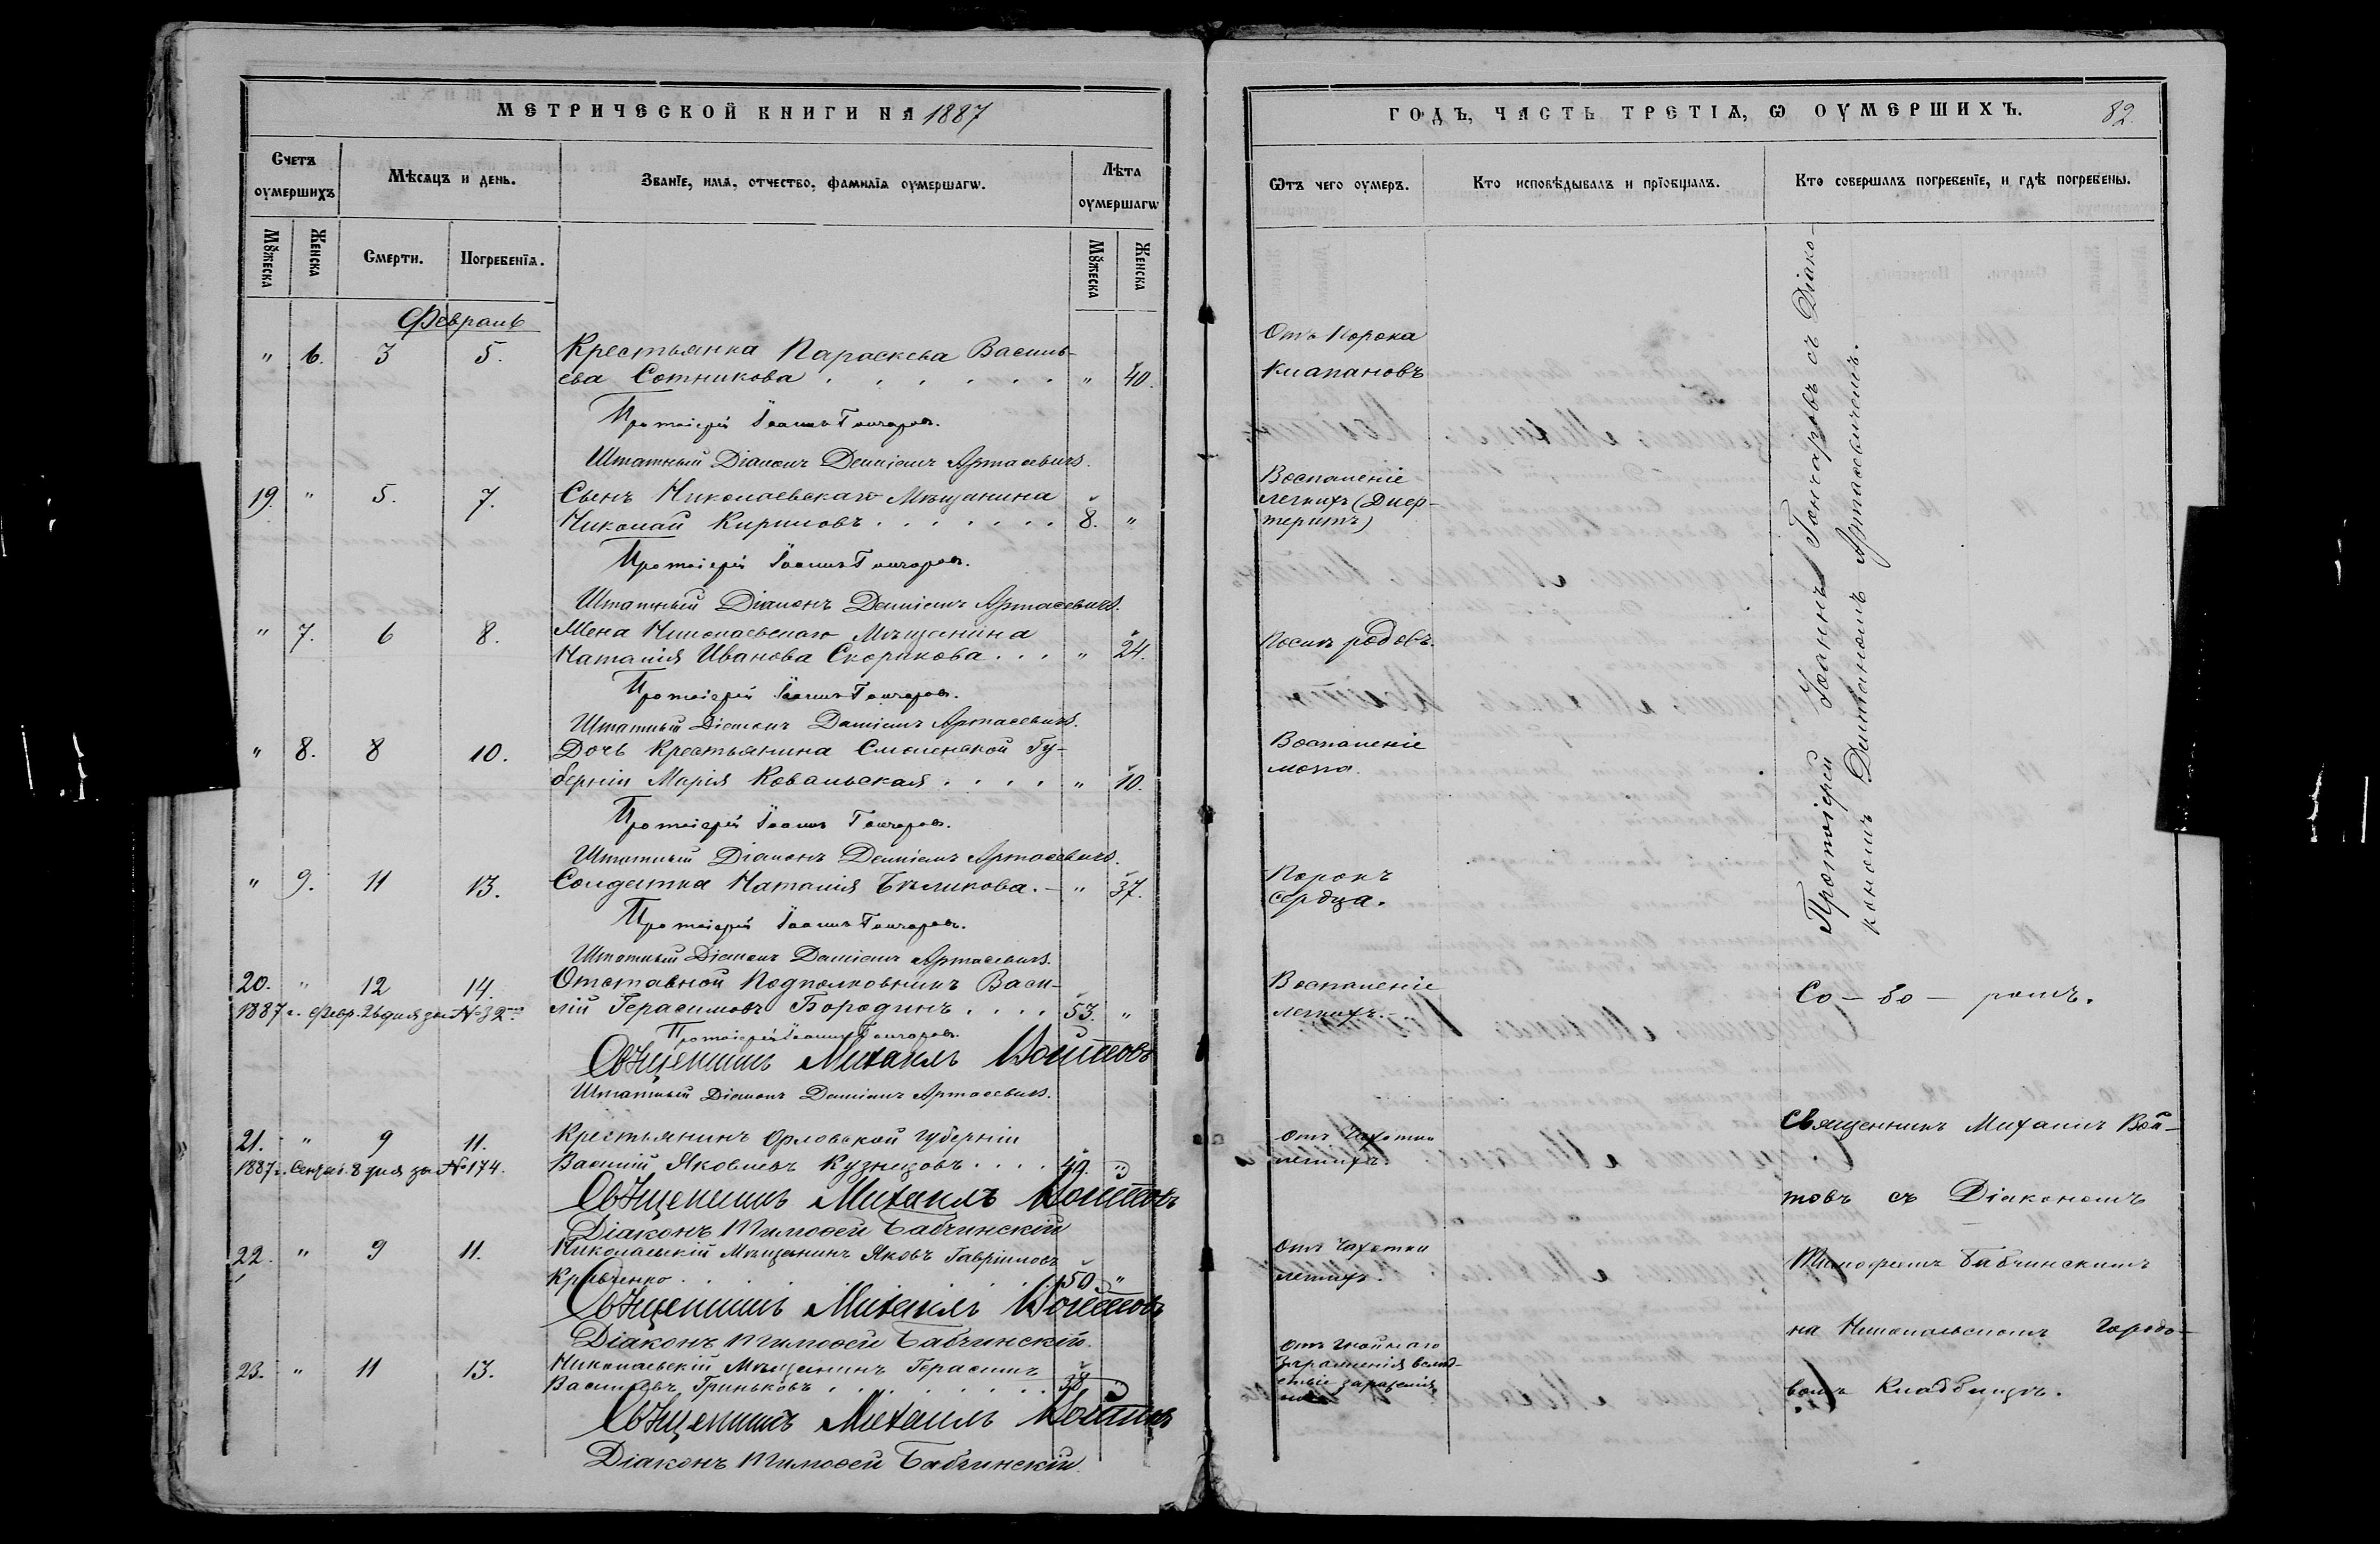 МЕТРИЧЕСКОЙ КНИГИ НА 1887
Счетъ оумершихъ
Мѣсяцъ и день.
Званїе, имя, отчество, фамилїя оумершагѡ.
Лѣта оумершагѡ
Мꙋжеска
Женска
Смерти.
Погребенїя.
Мꙋжеска
Женска
Февраль
" 6. 3 5. Крестьянка Параскева Василь-
ева Сотникова . . . . . . " 40.
Протоіерей Іоаннъ Гончаровъ.
Штатный Діаконъ Даміанъ Артасевичъ.
19. " 5. 7. Сынъ Николаевскаго Мѣщанина
Николай Кириловъ . . . . . . . 8. "
Протоіерей Іоаннъ Гончаровъ.
Штатный Діаконъ Даміанъ Артасевичъ.
" 7. 6 8. Жена Николаевскаго Мѣщанина
Наталія Иванова Скорикова . . . " 24.
Протоіерей Іоаннъ Гончаровъ.
Штатный Діаконъ Даміанъ Артасевичъ.
" 8. 8 10. Дочь Крестьянина Смоленской Гу-
берніи Марія Ковальская . . . . " 10.
Протоіерей Іоаннъ Гончаровъ.
Штатный Діаконъ Даміанъ Артасевичъ.
" 9. 11 13. Солдатка Наталія Бѣликова. – " 37.
Протоіерей Іоаннъ Гончаровъ.
Штатный Діаконъ Даміанъ Артасевичъ.
20. " 12 14. Отставной Подполковникъ Васи-
1887 г. Февр. 26 дня за № 32 лій Герасимовъ Бородинъ . . . . 53. "
Протоіерей Іоаннъ Гончаровъ.
Священникъ Михаилъ Войтовъ
Штатный Діаконъ Даміанъ Артасевичъ.
21. " 9 11. Крестьянинъ Орловской губерніи
1887 г. 8 дня за № 174. Василій Яковлевъ Кузнецовъ . . . . "
Священникъ Михаилъ Войтовъ
Діаконъ Тимоѳей Бабчинскій
22. " 9 11. Николаевскій Мѣщанинъ Яковъ Гавріиловъ
Кравченко . . . . . . . 50 "
Священникъ Михаилъ Войтовъ
Діаконъ Тимоѳей Бабчинскій.
23. " 11 13. Николаевскій Мѣщанинъ Герасимъ
Васильевъ Гриньковъ . . . . . . . "
Священникъ Михаилъ Войтовъ
Діаконъ Тимоѳей Бабчинскій.
ГОДЪ, ЧАСТЬ ТРЕТІѦ, Ѡ ОУМЕРШИХЪ. 82.
Ѿтъ чего оумеръ.
Кто исповѣдывалъ и прїобщалъ.
Кто совершалъ погребенїе, и гдѣ погребены.
Отъ Порока
Клапановъ
Воспаленіе
легкихъ (Диф-
теритъ)
Послѣ родовъ.
Воспаленіе
мозга.
Порокъ
сердца.
Воспаленіе
легкихъ. –
Отъ Чахотки
легкихъ.
Отъ Чахотки
легкихъ.
Отъ гнойнаго
зараженія вслѣд-
ствіе зараженія
Протоіерей Іоаннъ Гончаровъ съ Діако-
кономъ Даміаномъ Артасевичемъ.
Со – бо – ромъ.
Священникъ Михаилъ Вой-
товъ съ Діакономъ
Тимофеемъ Бабчинскимъ
на Николаевскомъ Городо-
вомъ Кладбищѣ.